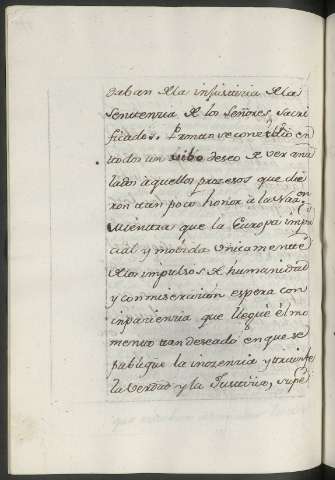 daban de la injusticia de la
Sentenzia de los Señores sacri
ficados. Y mas se conoció en
todos un vibo deseo de ver anu
lados aquellos prozesos que die
ron tan poco honor a la Naz.on
Mientras que la Europa impar
cial y movida unicamente
de los impulsos de humanidad
y conmiserazion espera con
impazienzia que llegue el mo
mento tan deseado en que se
publique la inozenzia y triunfe
la verdad y la Justizia, supe